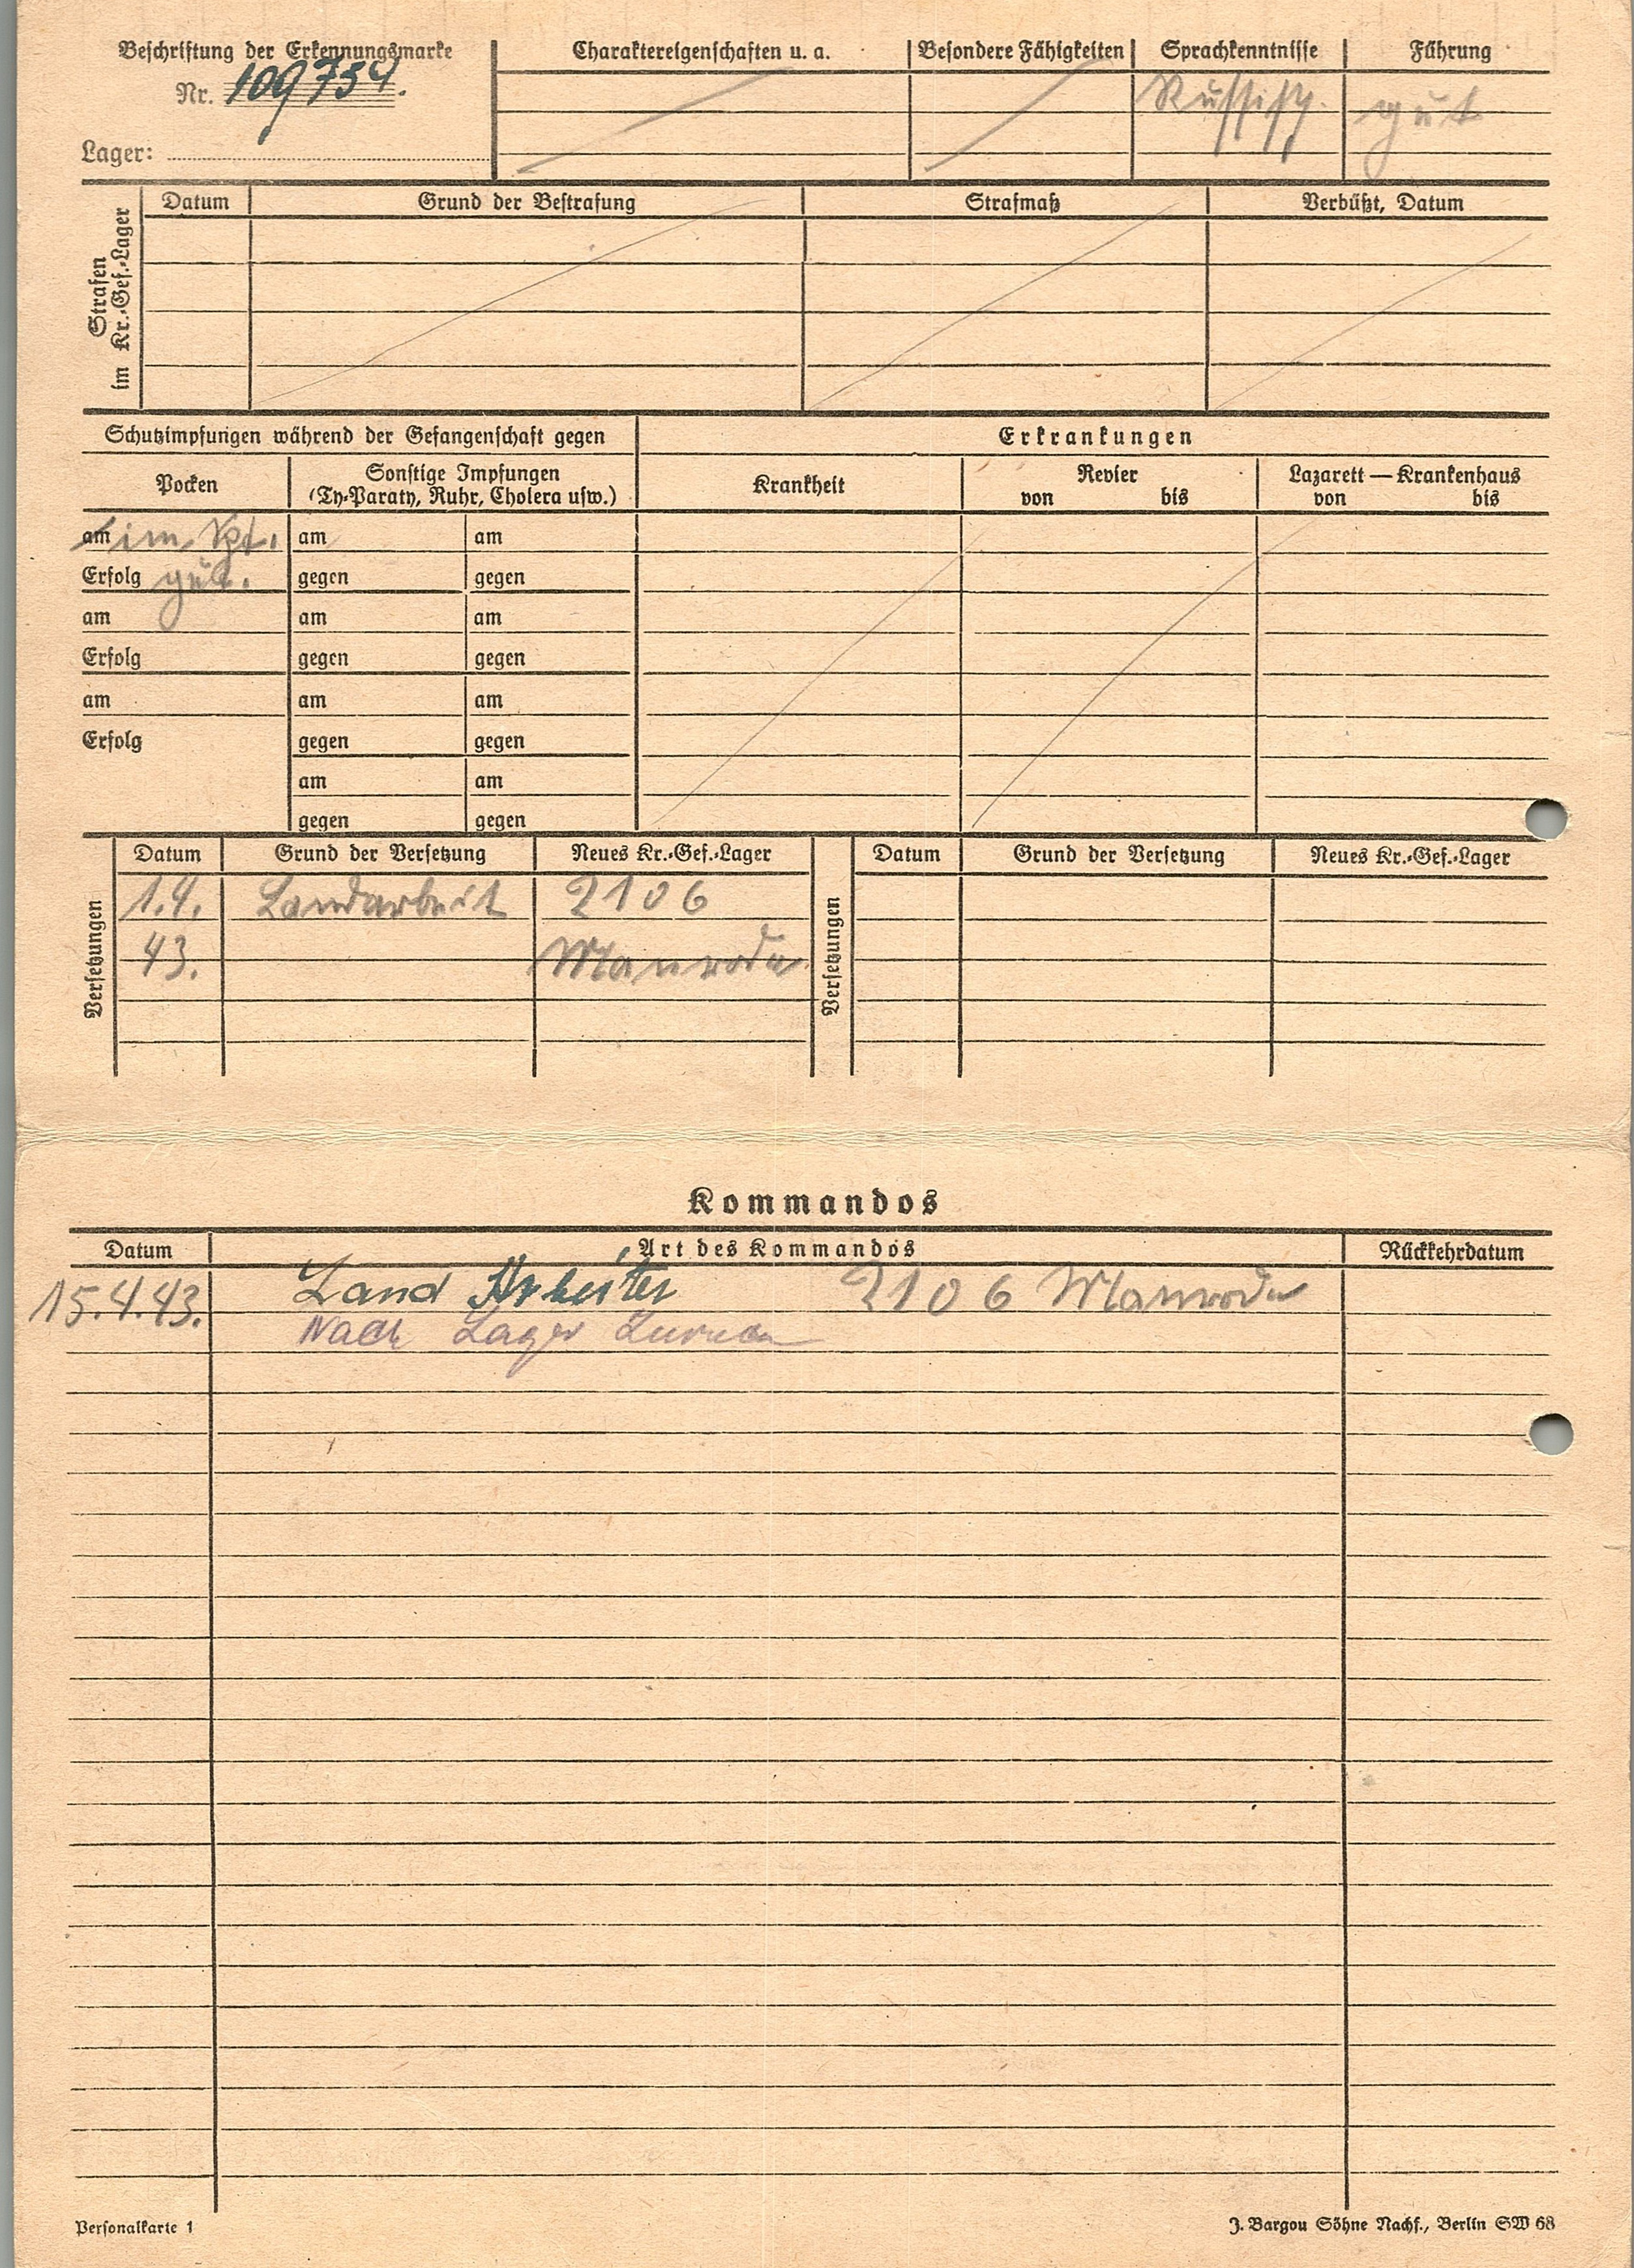 Beschriftung der Erkennungsmarke
Nr. 109754.
Lager:
Charaktereigenschaften u. a. Besondere Fähigkeiten Sprachkenntnisse Führung
Russisch. gut
Strafen im Kr.-Gef.-Lager
Datum Grund der Bestrafung Strafmaß Verbüßt, Datum
Schutzimpfungen während der Gefangenschaft gegen
Erkrankungen
Pocken
Sonstige Impfungen
(Ty-Paraty, Ruhr, Cholera usw.)
Krankheit
Revier
von bis
Lazarett — Krankenhaus
von bis
am im am am
Erfolg gegen gegen
am am am
Erfolg gegen gegen
am am am
Erfolg gegen gegen
am am
gegen gegen
Versetzungen
Datum Grund der Versetzung Neues Kr.-Gef.-Lager
1.4. Landarbeit 2106
43.
Versetzungen
Datum Grund der Versetzung Neues Kr.-Gef.-Lager
Kommandos
Datum Art des Kommandos Rückkehrdatum
15.4.43. Land Arbeiter 2106
Nach Lager
Personalkarte 1
J. Bargou Söhne Nachf., Berlin SW 68